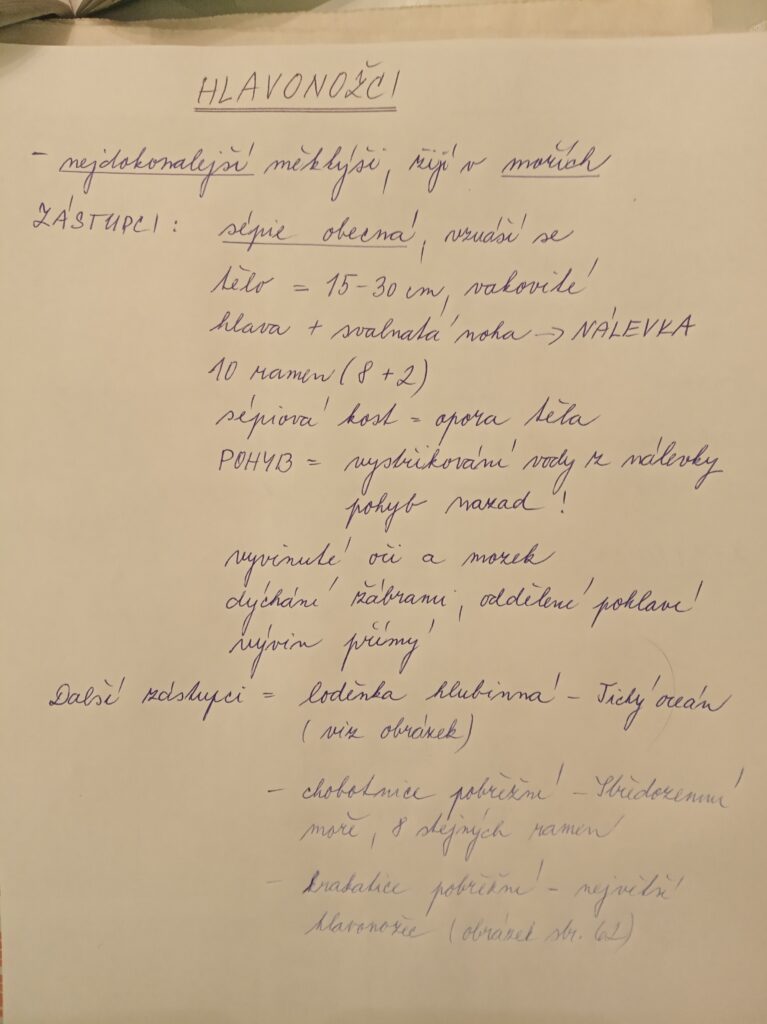 HLAVONOŽCI
- nejdokonalejší měkkýši, žijí v mořích
ZÁSTUPCI: sépie obecná, vznáší se
tělo = 15-30 cm, vakovité
hlava + svalnatá noha → NÁLEVKA
10 ramen (8+2)
sépiová kost = opora těla
POHYB = vystřikování vody z nálevky
pohyb nazad!
vyvinuté oči a mozek
dýchání žábrami, oddělené pohlaví
vývin přímý
Další zástupci = loděnka hlubinná - Tichý oceán
(viz obrázek)
- chobotnice pobřežní - Středozemní
moře, 8 stejných ramen
- krakatice pobřežní - největší
hlavonožec (obrázek str. 62)